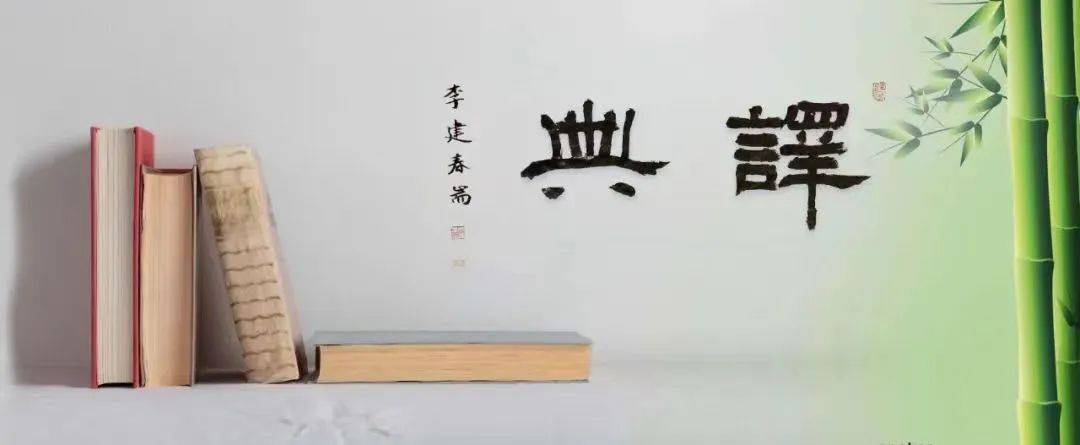 譯典
李建春耑